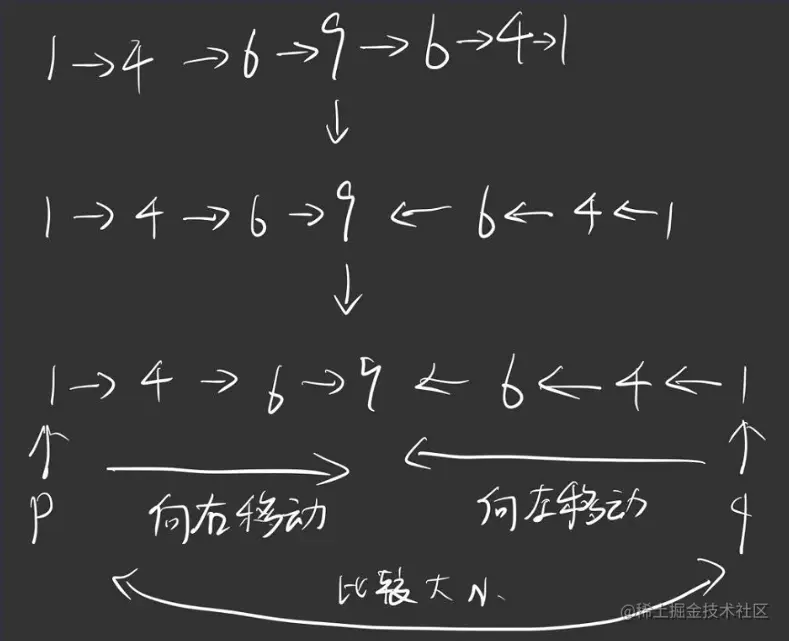 1→4→6→9→6→4→1
↓
1→4→6→9←6←4←1
↓
1→4→6→9←6←4←1
↑ ↑
p 向右移动 向左移动 q
比较大小
@稀土掘金技术社区